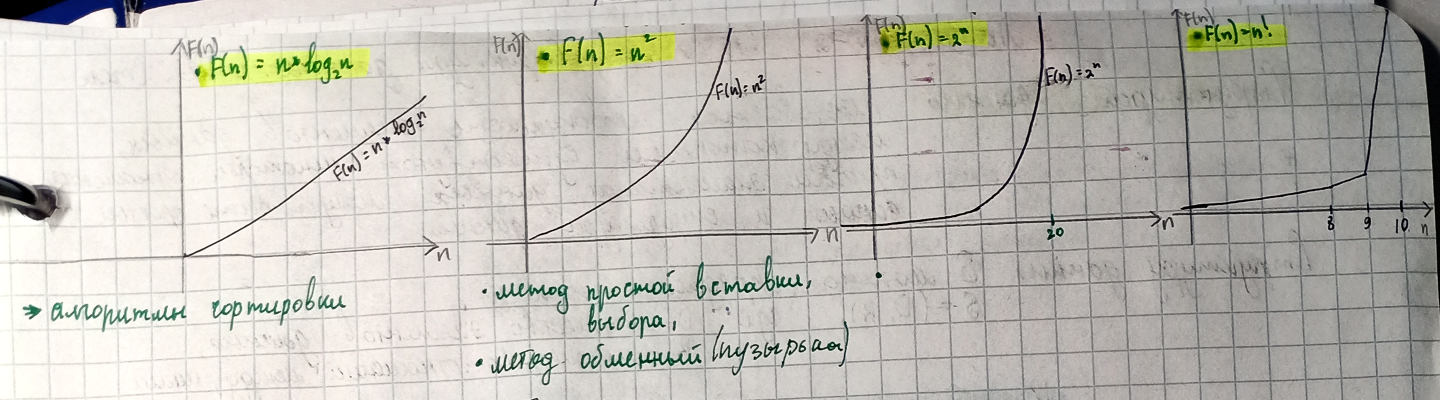 F(n)
• F(n) = n * log₂n
F(n) = n * log₂n
n
→ алгоритмы сортировки
F(n)
• F(n) = n²
F(n) = n²
n
• метод простой вставки,
выбора,
• метод обменный (пузырька)
F(n)
• F(n) = 2ⁿ
F(n) = 2ⁿ
20
n
•
F(n)
• F(n) = n!
8 9 10 n